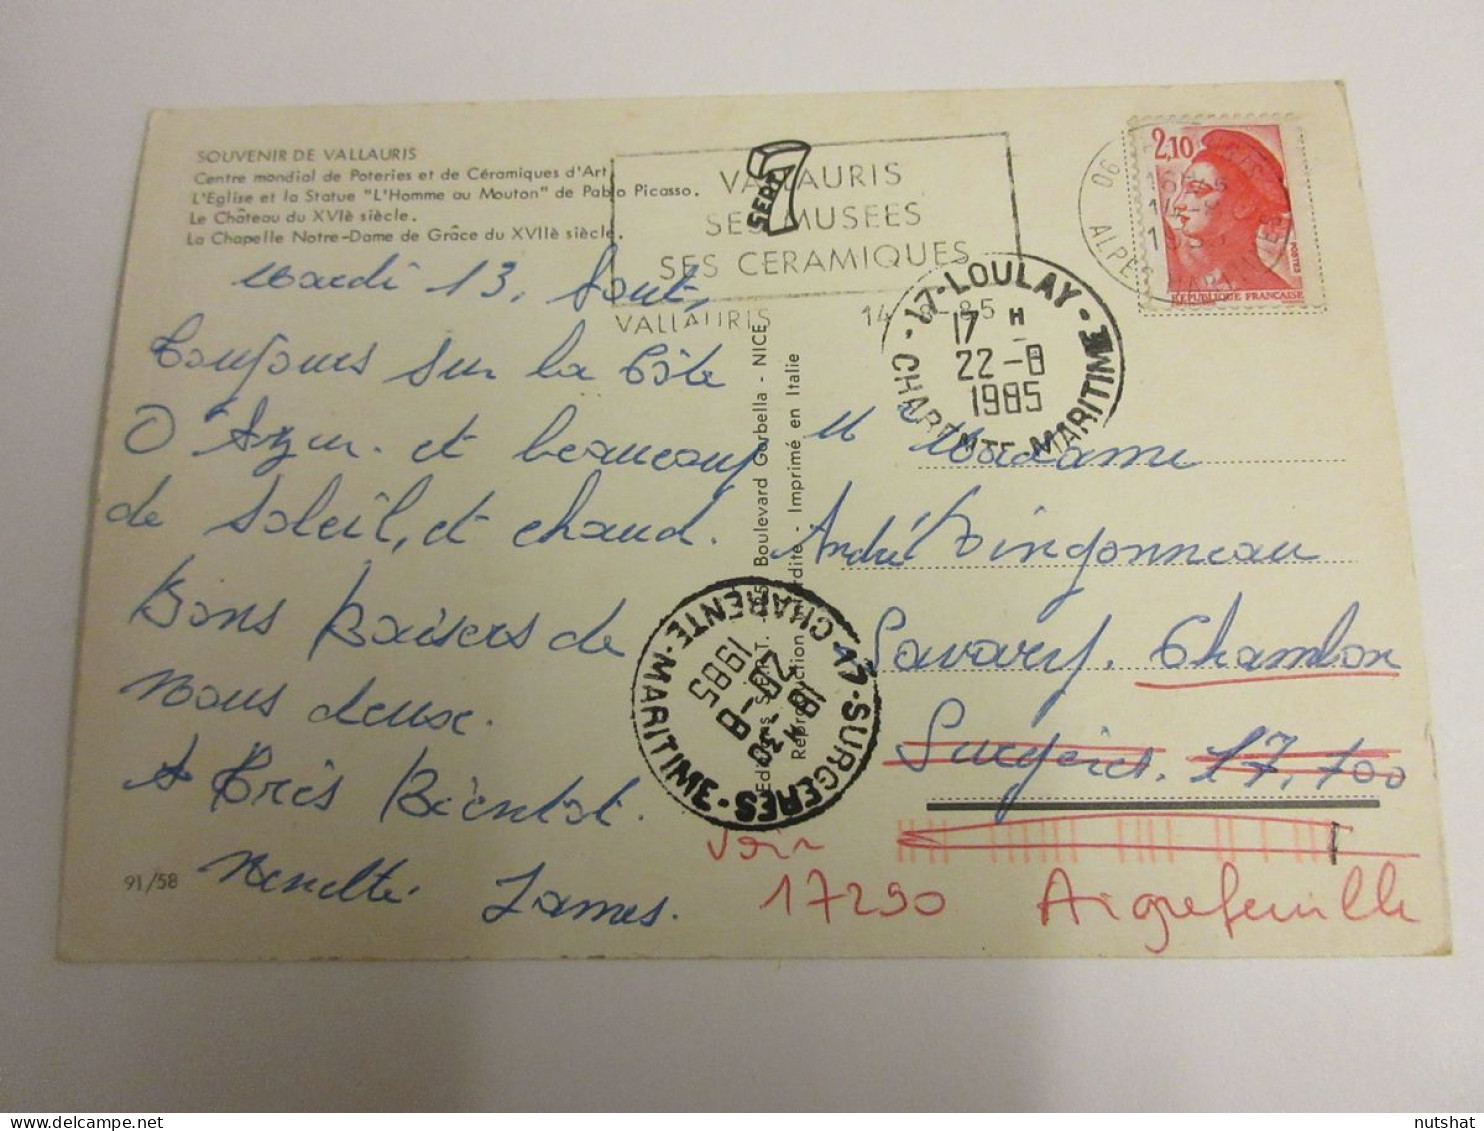 SOUVENIR DE VALLAURIS
Centre mondial de Poteries et de Céramiques d'Art.
L'Eglise et la Statue "L'Homme au Mouton" de Pablo Picasso.
Le Château du XVIè siècle.
La Chapelle Notre-Dame de Grâce du XVIIè siècle.
VALLAURIS
SES MUSEES
SES CERAMIQUES
VALLAURIS 14-8-85
7
SEPT
06
ALPES MARITIMES
2,10
POSTES
REPUBLIQUE FRANCAISE
17-LOULAY
17 H
22-8
1985
CHARENTE-MARITIME
Mardi 13, Aout,
Toujours sur la Côte
D'Azur. et beaucoup
de Soleil, et chaud.
Bons Baisers de
Nous deux.
A très Bientôt.
James.
91/58
Boulevard Gorbella - NICE
Reproduction interdite - Imprimé en Italie
17-SURGERES
18 H 30
20-8
1985
CHARENTE-MARITIME
M Madame
André Tingonneau
Savary. Chambon
Surgères. 17,700
voir
17290 Aigrefeuille
nutshat